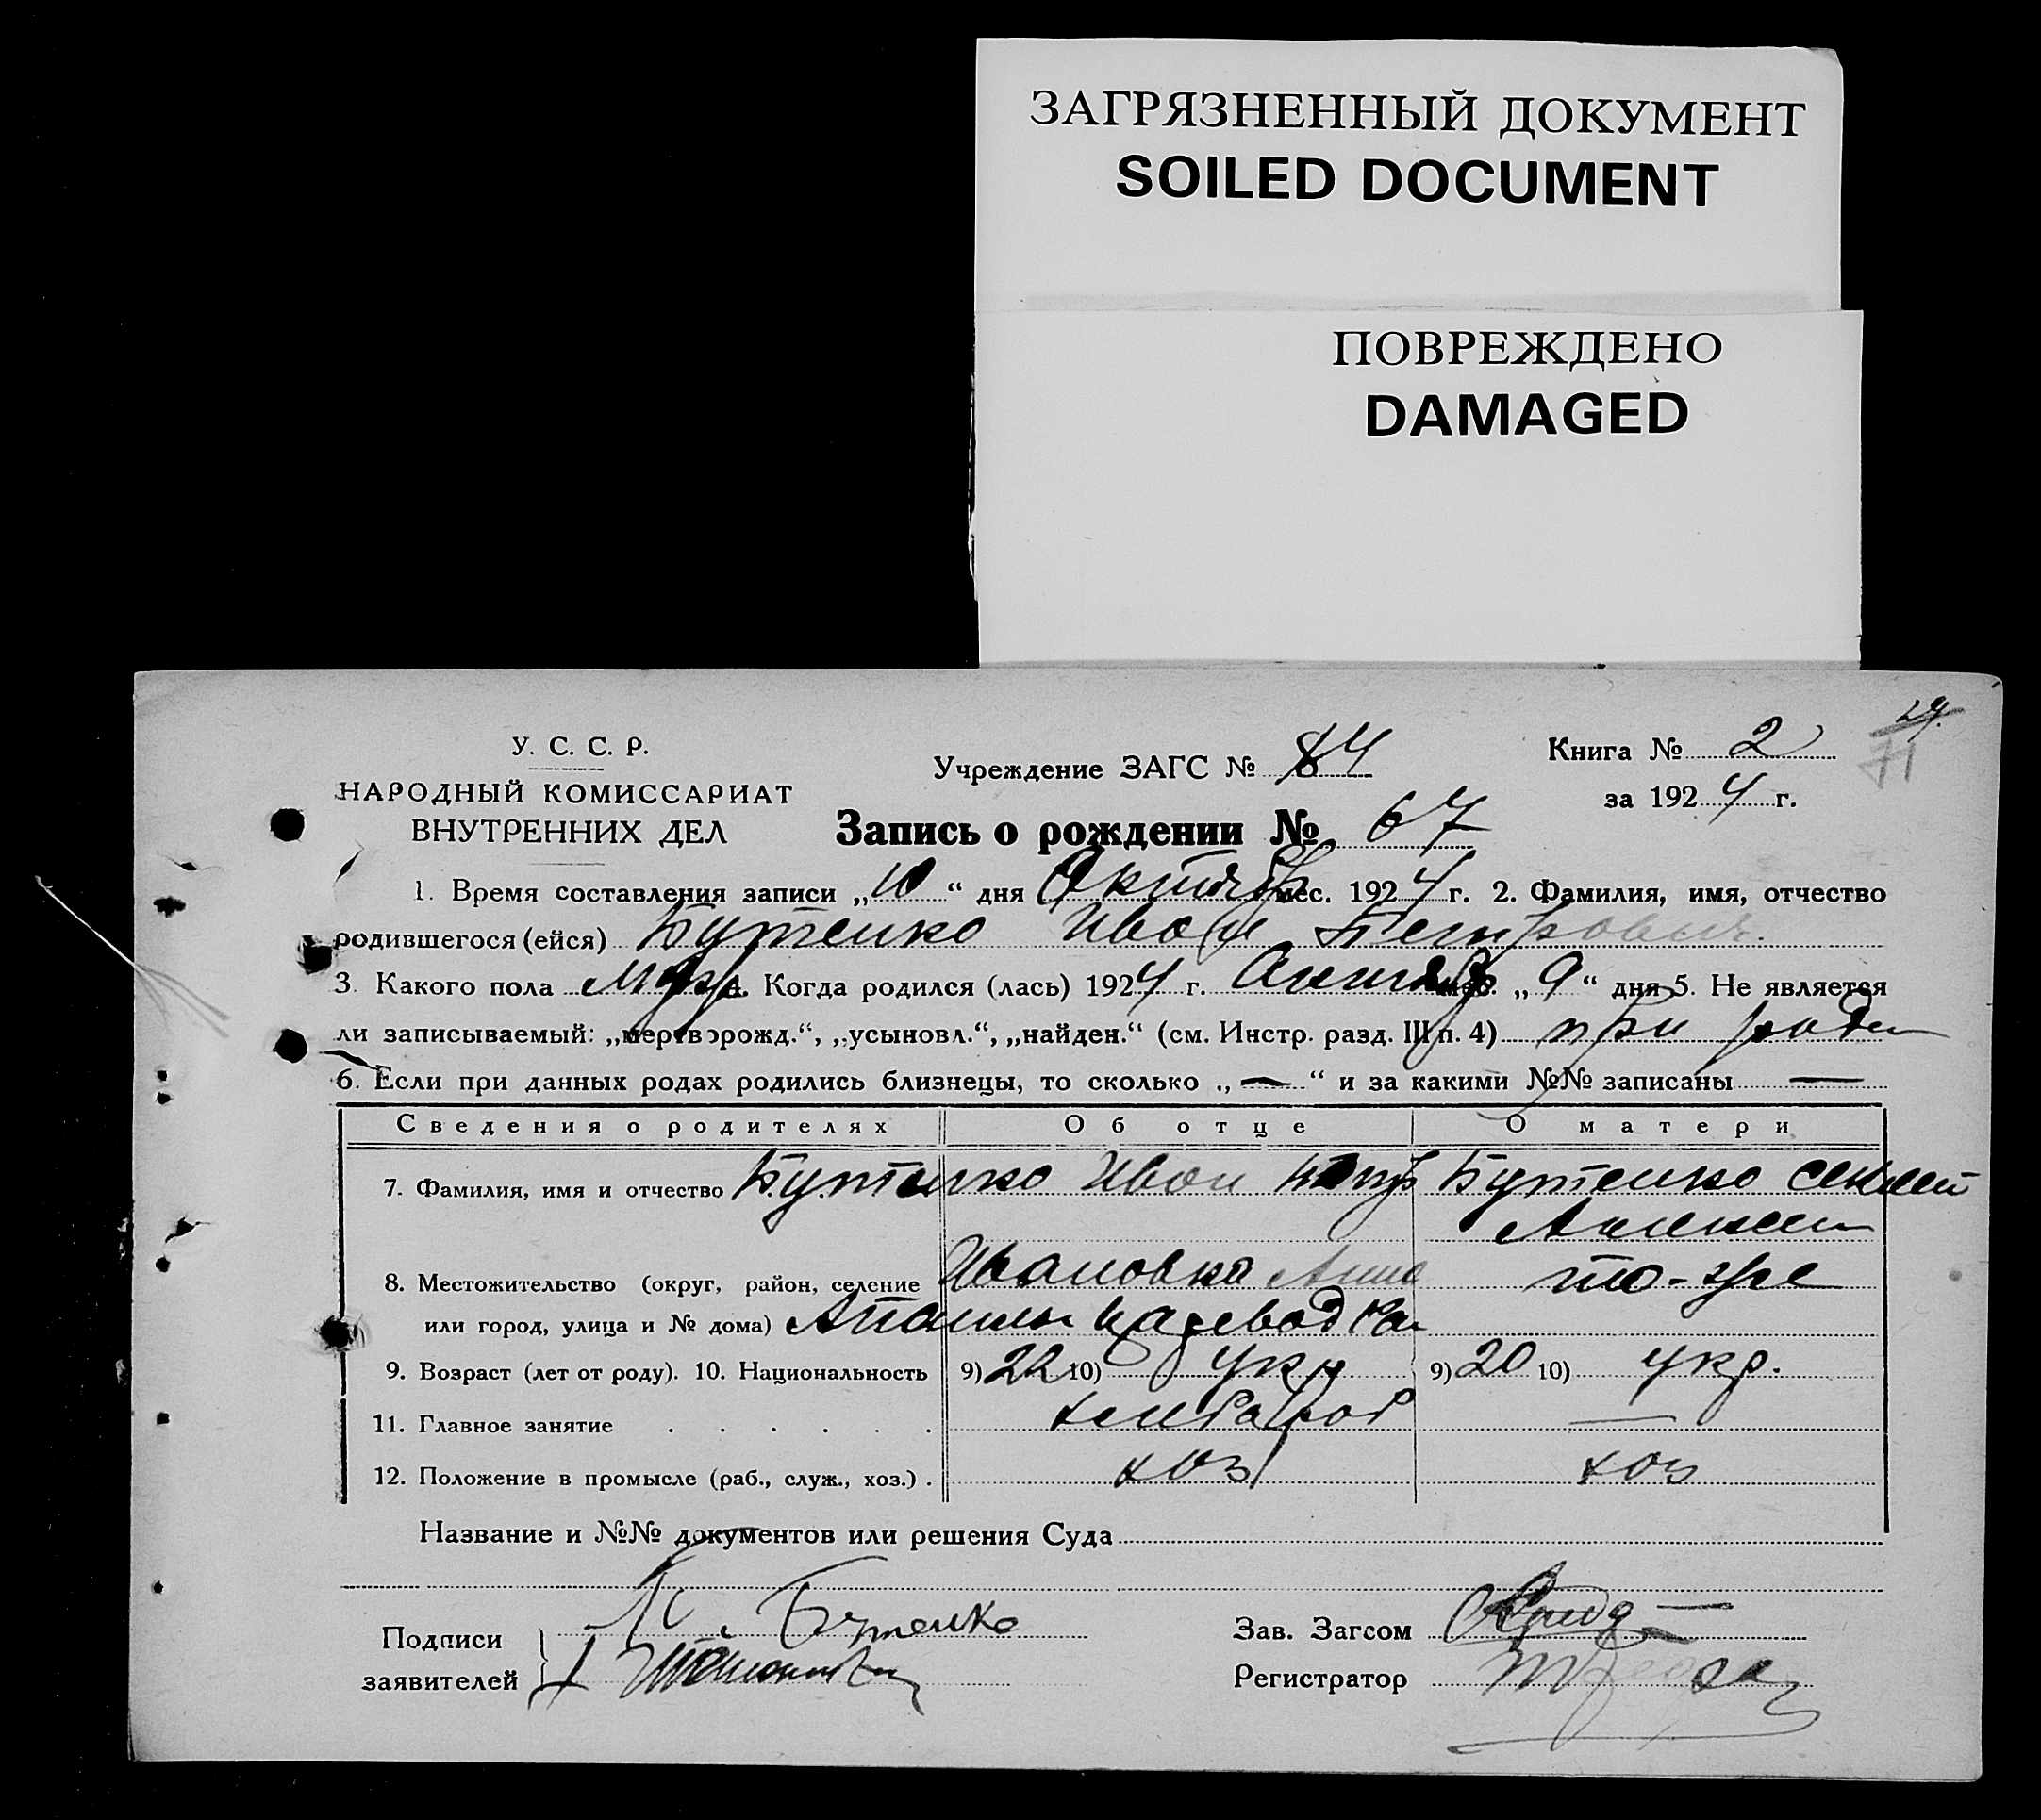 ЗАГРЯЗНЕННЫЙ ДОКУМЕНТ
SOILED DOCUMENT
ПОВРЕЖДЕНО
DAMAGED
29.
71
У. С. С. Р.
НАРОДНЫЙ КОМИССАРИАТ
ВНУТРЕННИХ ДЕЛ
Учреждение ЗАГС № 84
Книга № 2
за 1924 г.
Запись о рождении № 67
1. Время составления записи „10“ дня Октябр мес. 1924 г. 2. Фамилия, имя, отчество
родившегося (ейся) Бутенко Иван Петрович.
3. Какого пола Муж 4. Когда родился (лась) 1924 г. Октябр мес. „9“ дня 5. Не является
ли записываемый: „мертворожд.“, „усыновл.“, „найден.“ (см. Инстр. разд. III п. 4) при роде
6. Если при данных родах родились близнецы, то сколько „—“ и за какими №№ записаны —
Сведения о родителях Об отце О матери
7. Фамилия, имя и отчество Бутенко Иван Бутенко
8. Местожительство (округ, район, селение Ивановка то-же
или город, улица и № дома)
9. Возраст (лет от роду). 10. Национальность 9) 22 10) укр 9) 20 10) укр.
11. Главное занятие . . . . . . хлебороб —
12. Положение в промысле (раб., служ., хоз.) . хоз хоз
Название и №№ документов или решения Суда
Подписи
заявителей
Бутенко
Зав. Загсом
Регистратор